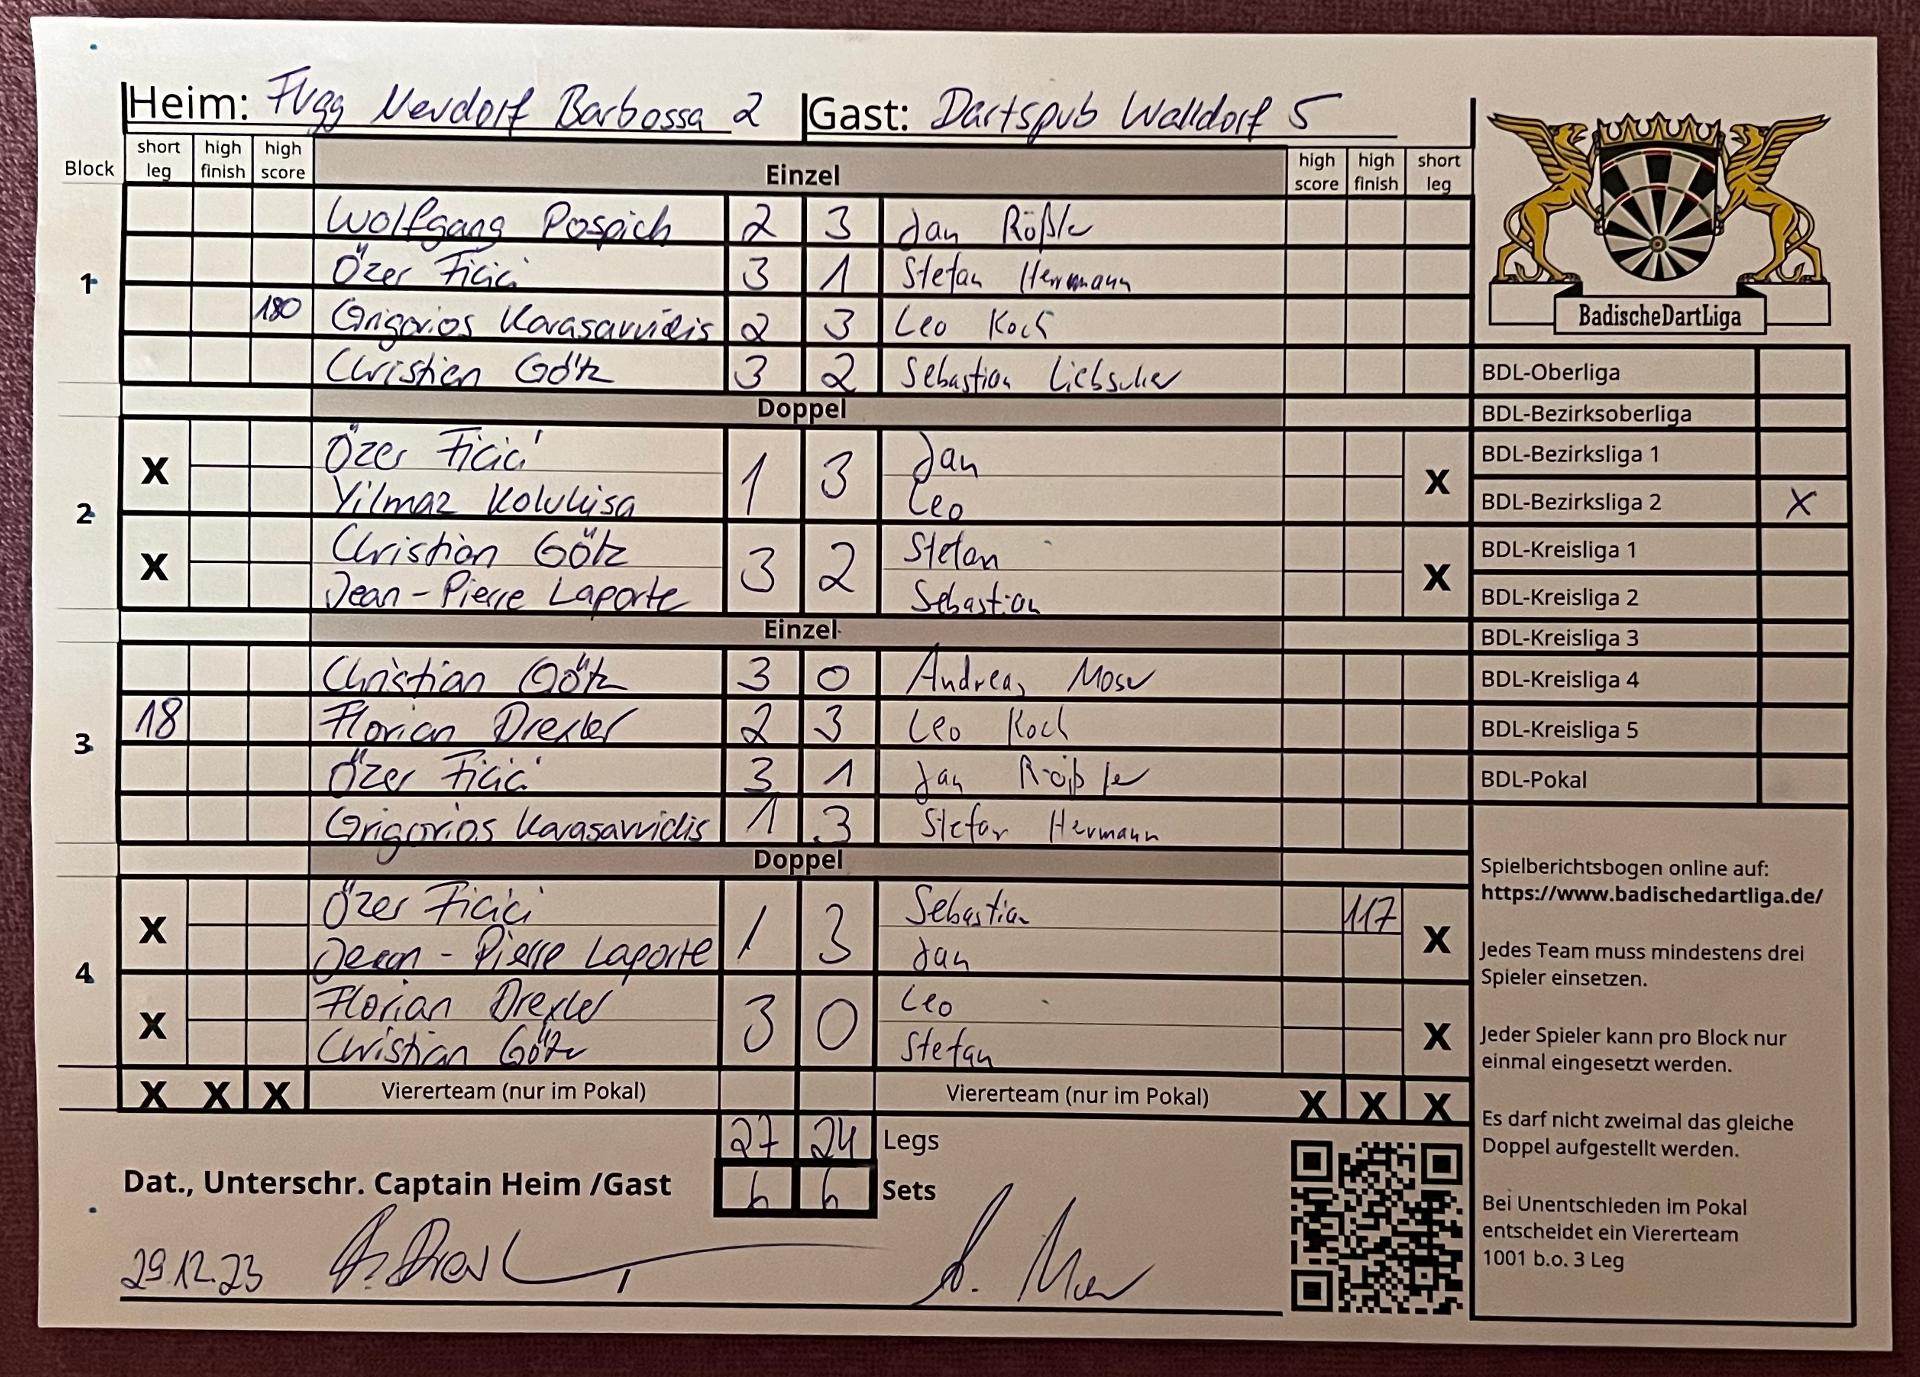 Heim: FVgg Neudorf Barbossa 2 Gast: Dartspub Walldorf 5
Block short leg high finish high score Einzel high score high finish short leg
1
Wolfgang Pospich 2 3 Jan Rößler
Özer Ficici 3 1 Stefan Herrmann
180 Grigorios Karasavvidis 2 3 Leo Koch
Christian Götz 3 2 Sebastian Liebscher
Doppel
2
X Özer Ficici 1 3 Jan X
Yilmaz Kolukisa Leo
X Christian Götz 3 2 Stefan X
Jean-Pierre Laporte Sebastian
Einzel
3
Christian Götz 3 0 Andreas Moser
18 Florian Drexler 2 3 Leo Koch
Özer Ficici 3 1 Jan Rößler
Grigorios Karasavvidis 1 3 Stefan Hermann
Doppel
4
X Özer Ficici 1 3 Sebastian 117 X
Jean-Pierre Laporte Jan
X Florian Drexler 3 0 Leo X
Christian Götz Stefan
X X X Viererteam (nur im Pokal) Viererteam (nur im Pokal) X X X
27 24 Legs
Dat., Unterschr. Captain Heim /Gast 6 6 Sets
29.12.23
BadischeDartLiga
BDL-Oberliga
BDL-Bezirksoberliga
BDL-Bezirksliga 1
BDL-Bezirksliga 2 X
BDL-Kreisliga 1
BDL-Kreisliga 2
BDL-Kreisliga 3
BDL-Kreisliga 4
BDL-Kreisliga 5
BDL-Pokal
Spielberichtsbogen online auf:
https://www.badischedartliga.de/
Jedes Team muss mindestens drei
Spieler einsetzen.
Jeder Spieler kann pro Block nur
einmal eingesetzt werden.
Es darf nicht zweimal das gleiche
Doppel aufgestellt werden.
Bei Unentschieden im Pokal
entscheidet ein Viererteam
1001 b.o. 3 Leg